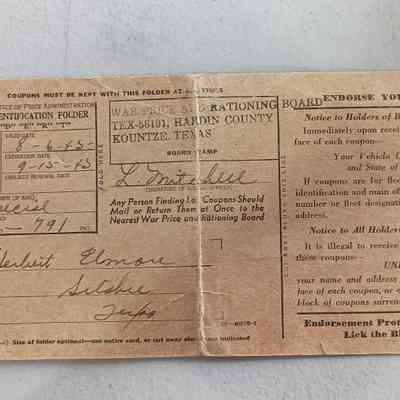 COUPONS MUST BE KEPT WITH THIS FOLDER AT ALL TIMES
OFFICE OF PRICE ADMINISTRATION
IDENTIFICATION FOLDER
8-6-45
EXPIRATION DATE
9-15-45
EARLIEST RENEWAL DATE
Special
791
FOLD HERE
WAR PRICE AND RATIONING BOARD
TEX-56491, HARDIN COUNTY
KOUNTZE, TEXAS
BOARD STAMP
L Mitchell
(SIGNATURE OF ISSUING OFFICER)
Any Person Finding Lost Coupons Should
Mail or Return Them at Once to the
Nearest War Price and Rationing Board
Herbert Elmore
Silsbee
Texas
Size of folder optional—use table in, or cut away along lines indicated
ENDORSE YOU
Notice to Holders of
Immediately upon recei
face of each coupon:
Your Vehicle
and State of
If coupons are for fleet
identification and main of
number or fleet designation
address.
Notice to All Holders
It is illegal to receive
these coupons—
UN
your name and address
face of each coupon, or
block of coupons surren
Endorsement Pro
Lick the Bl